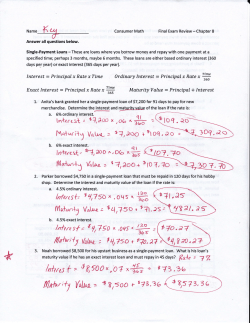 Name Key Consumer Math Final Exam Review – Chapter 8
Answer all questions below.
Single-Payment Loans – These are loans where you borrow money and repay with one payment at a
specified time, perhaps 3 months, maybe 6 months. These loans are either based ordinary interest (360
days per year) or exact interest (365 days per year).
Interest = Principal x Rate x Time Ordinary Interest = Principal x Rate x Time/360
Exact Interest = Principal x Rate x Time/365 Maturity Value = Principal + Interest
1. Anita's bank granted her a single-payment loan of $7,200 for 91 days to pay for new
merchandise. Determine the interest and maturity value of the loan if the rate is:
a. 6% ordinary interest.
Interest = $7,200 x .06 x 91/360 = $109.20
Maturity Value = $7,200 + $109.20 = $7,309.20
b. 6% exact interest.
Interest = $7,200 x .06 x 91/365 = $107.70
Maturity Value = $7,200 + $107.70 = $7,307.70
2. Parker borrowed $4,750 in a single-payment loan that must be repaid in 120 days for his hobby
shop. Determine the interest and maturity value of the loan if the rate is:
a. 4.5% ordinary interest.
Interest = $4,750 x .045 x 120/360 = $71.25
Maturity Value = $4,750 + $71.25 = $4821.25
b. 4.5% exact interest.
Interest = $4,750 x .045 x 120/365 = $70.27
Maturity Value = $4,750 + $70.27 = $4,820.27
3. Noah borrowed $8,500 for his upstart business as a single-payment loan. What is his loan's
maturity value if he has an exact interest loan and must repay in 45 days? Rate: 7%
Interest = $8,500 x .07 x 45/365 = $73.36
Maturity Value = $8,500 + $73.36 = $8,573.36